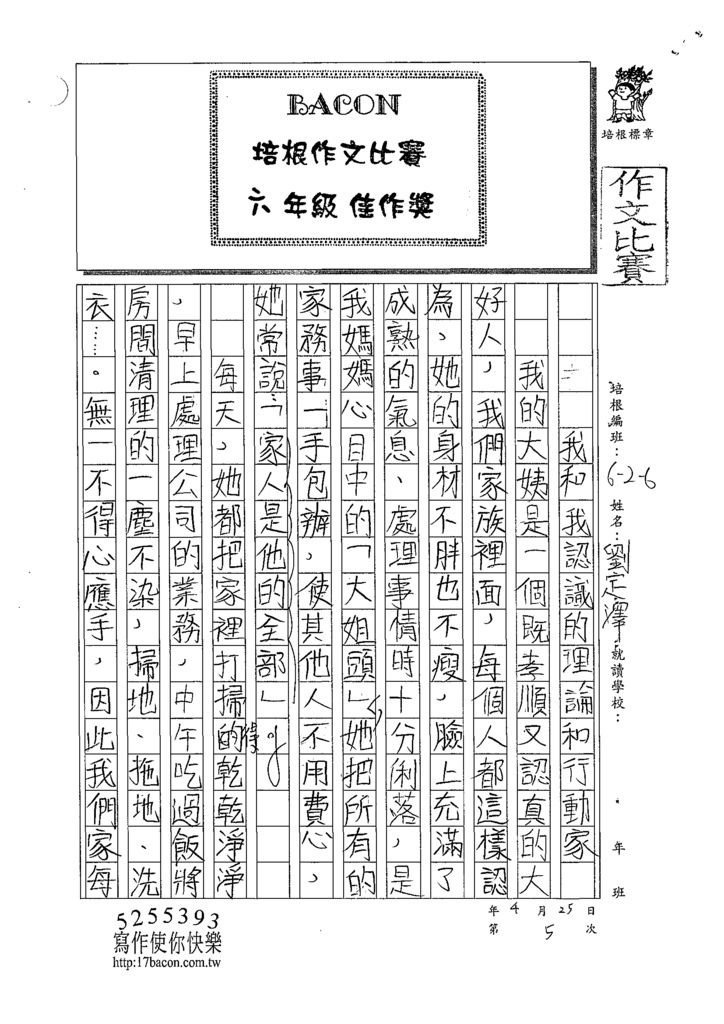 BACON
培根作文比賽
六年級佳作獎
培根標章
作文比賽
培根編班：6-2-6 姓名：劉定澤 就讀學校： 年 班
年 4 月 25 日
第 5 次
我和我認識的理論和行動家
我的大姨是一個既孝順又認真的大
好人，我們家族裡面，每個人都這樣認
為，她的身材不胖也不瘦，臉上充滿了
成熟的氣息、處理事情時十分俐落，是
我媽媽心目中的「大姐頭」她把所有的
家務事一手包辦，使其他人不用費心，
她常說「家人是他的全部」。
每天，她都把家裡打掃的得乾乾淨淨
，早上處理公司的業務，中午吃過飯將
房間清理的一塵不染，掃地、拖地、洗
衣……。無一不得心應手，因此我們家每
5255393
寫作使你快樂
http:17bacon.com.tw